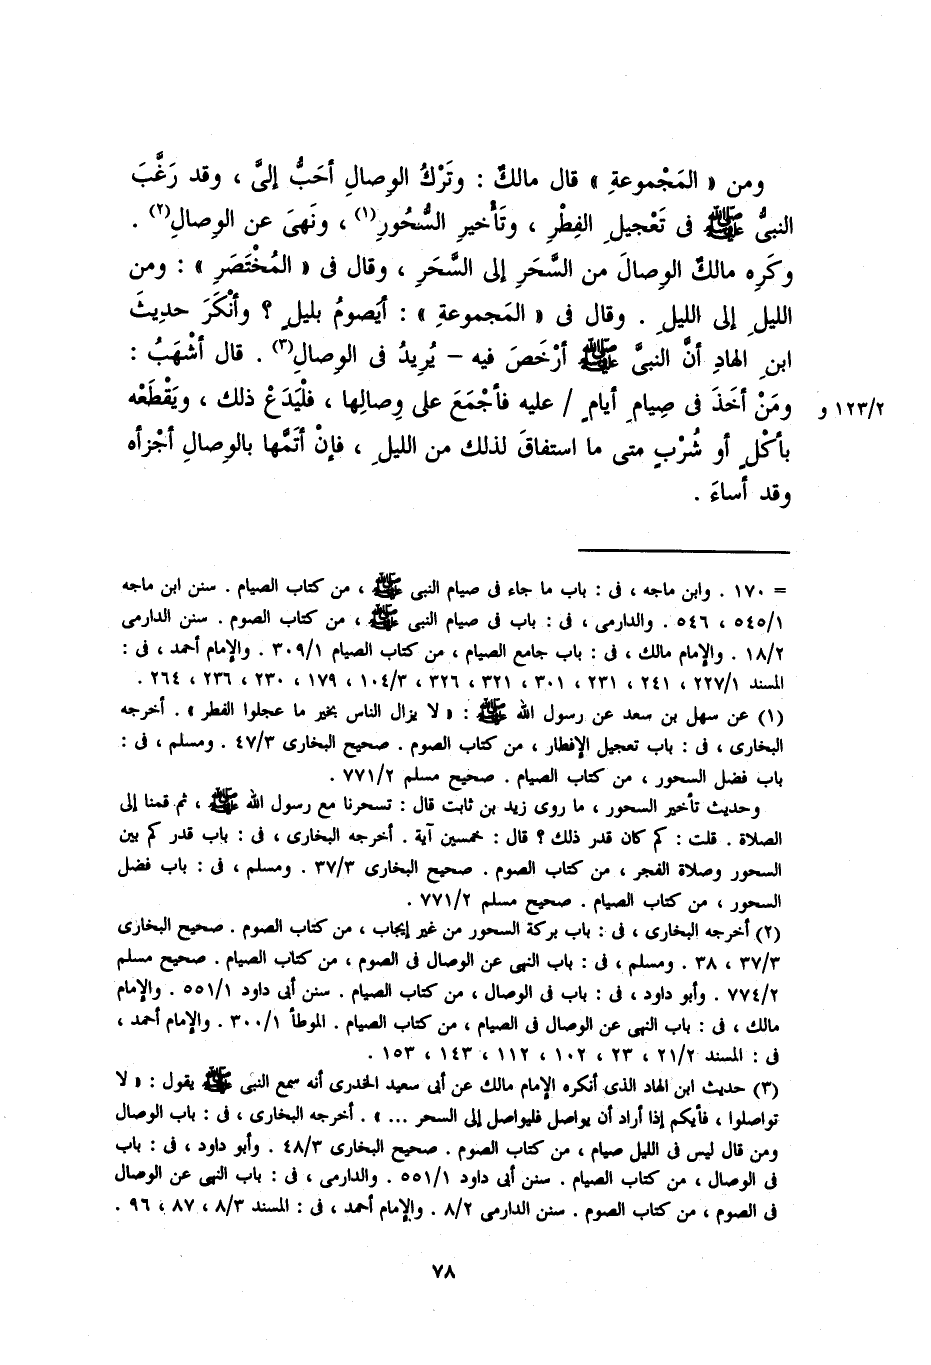 ومن « المَجْموعةِ » قال مالكٌ : وتَرْكُ الوِصالِ أحَبُّ إلىَّ ، وقد رَغَّبَ
النبىُّ ﷺ فى تَعْجيلِ الفِطْرِ ، وتَأْخيرِ السُّحُورِ(١) ، ونَهىَ عن الوِصالِ(٢) .
وكَرِه مالكٌ الوِصالَ من السَّحَرِ إلى السَّحَرِ ، وقال فى « المُخْتَصَرِ » : ومن
الليلِ إلى الليلِ . وقال فى « المَجموعةِ » : أيَصومُ بليلٍ ؟ وأنْكَرَ حديثَ
ابنِ الهادِ أنَّ النبىَّ ﷺ أرْخَصَ فيه – يُرِيدُ فى الوِصالِ(٣) . قال أشْهَبُ :
ومَنْ أخَذَ فى صِيامِ أيامٍ / عليه فأجْمَعَ على وِصالِها ، فلْيَدَعْ ذلك ، ويَقْطَعْه
١٢٣/٢ و
بأكْلٍ أو شُرْبٍ متى ما استفاقَ لذلك من الليلِ ، فإنْ أتَمَّها بالوِصالِ أجْزأه
وقد أساءَ .
= ١٧٠ . وابن ماجه ، فى : باب ما جاء فى صيام النبى ﷺ ، من كتاب الصيام . سنن ابن ماجه
٥٤٥/١ ، ٥٤٦ . والدارمى ، فى : باب فى صيام النبى ﷺ ، من كتاب الصوم . سنن الدارمى
١٨/٢ . والإمام مالك ، فى : باب جامع الصيام ، من كتاب الصيام ٣٠٩/١ . والإمام أحمد ، فى :
المسند ٢٢٧/١ ، ٢٤١ ، ٢٣١ ، ٣٠١ ، ٣٢١ ، ٣٢٦ ، ١٠٤/٣ ، ١٧٩ ، ٢٣٠ ، ٢٣٦ ، ٢٦٤ .
(١) عن سهل بن سعد عن رسول الله ﷺ : « لا يزال الناس بخير ما عجلوا الفطر » . أخرجه
البخارى ، فى : باب تعجيل الإفطار ، من كتاب الصوم . صحيح البخارى ٤٧/٣ . ومسلم ، فى :
باب فضل السحور ، من كتاب الصيام . صحيح مسلم ٧٧١/٢ .
وحديث تأخير السحور ، ما روى زيد بن ثابت قال : تسحرنا مع رسول الله ﷺ ، ثم قمنا إلى
الصلاة . قلت : كم كان قدر ذلك ؟ قال : خمسين آية . أخرجه البخارى ، فى : باب قدر كم بين
السحور وصلاة الفجر ، من كتاب الصوم . صحيح البخارى ٣٧/٣ . ومسلم ، فى : باب فضل
السحور ، من كتاب الصيام . صحيح مسلم ٧٧١/٢ .
(٢) أخرجه البخارى ، فى : باب بركة السحور من غير إيجاب ، من كتاب الصوم . صحيح البخارى
٣٧/٣ ، ٣٨ . ومسلم ، فى : باب النهى عن الوصال فى الصوم ، من كتاب الصيام . صحيح مسلم
٧٧٤/٢ . وأبو داود ، فى : باب فى الوصال ، من كتاب الصيام . سنن أبى داود ٥٥١/١ . والإمام
مالك ، فى : باب النهى عن الوصال فى الصيام ، من كتاب الصيام . الموطأ ٣٠٠/١ . والإمام أحمد ،
فى : المسند ٢١/٢ ، ٢٣ ، ١٠٢ ، ١١٢ ، ١٤٣ ، ١٥٣ .
(٣) حديث ابن الهاد الذى أنكره الإمام مالك عن أبى سعيد الخدرى أنه سمع النبى ﷺ يقول : « لا
تواصلوا ، فأيكم إذا أراد أن يواصل فليواصل إلى السحر ... » . أخرجه البخارى ، فى : باب الوصال
ومن قال ليس فى الليل صيام ، من كتاب الصوم . صحيح البخارى ٤٨/٣ . وأبو داود ، فى : باب
فى الوصال ، من كتاب الصيام . سنن أبى داود ٥٥١/١ . والدارمى ، فى : باب النهى عن الوصال
فى الصوم ، من كتاب الصوم . سنن الدارمى ٨/٢ . والإمام أحمد ، فى : المسند ٨/٣ ، ٨٧ ، ٩٦ .
٧٨